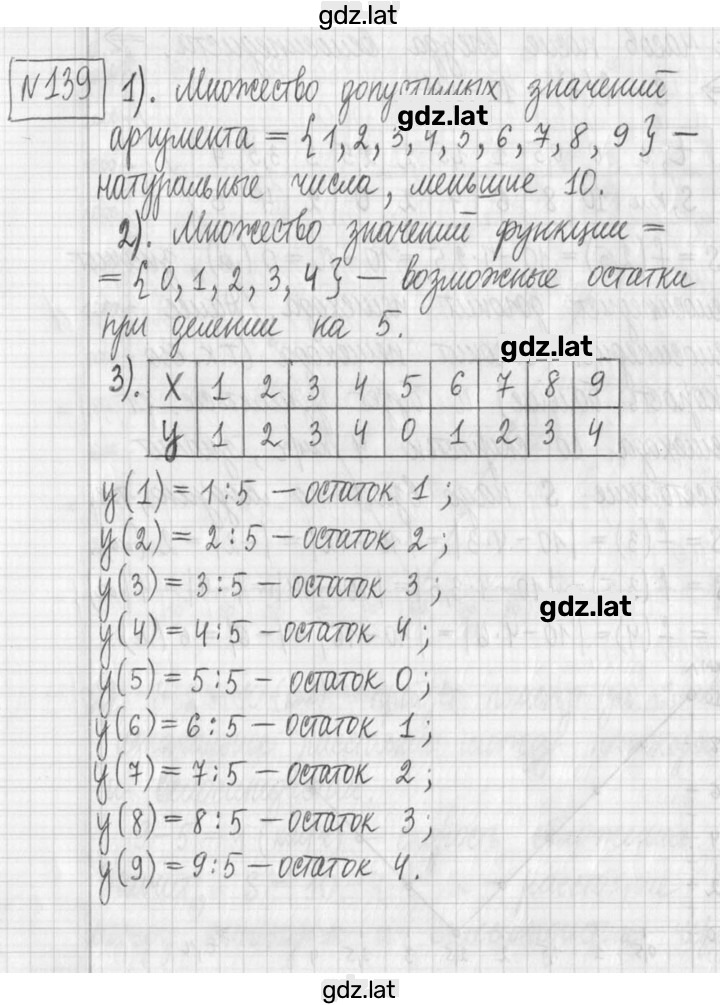 gdz.lat
№139 1). Множество допустимых значений
gdz.lat
аргумента = {1, 2, 3, 4, 5, 6, 7, 8, 9} —
натуральные числа, меньшие 10.
2). Множество значений функции =
= {0, 1, 2, 3, 4} — возможные остатки
при делении на 5.
gdz.lat
3). X 1 2 3 4 5 6 7 8 9
y 1 2 3 4 0 1 2 3 4
y(1) = 1:5 — остаток 1;
y(2) = 2:5 — остаток 2;
y(3) = 3:5 — остаток 3;
gdz.lat
y(4) = 4:5 — остаток 4;
y(5) = 5:5 — остаток 0;
y(6) = 6:5 — остаток 1;
y(7) = 7:5 — остаток 2;
y(8) = 8:5 — остаток 3;
y(9) = 9:5 — остаток 4.
gdz.lat